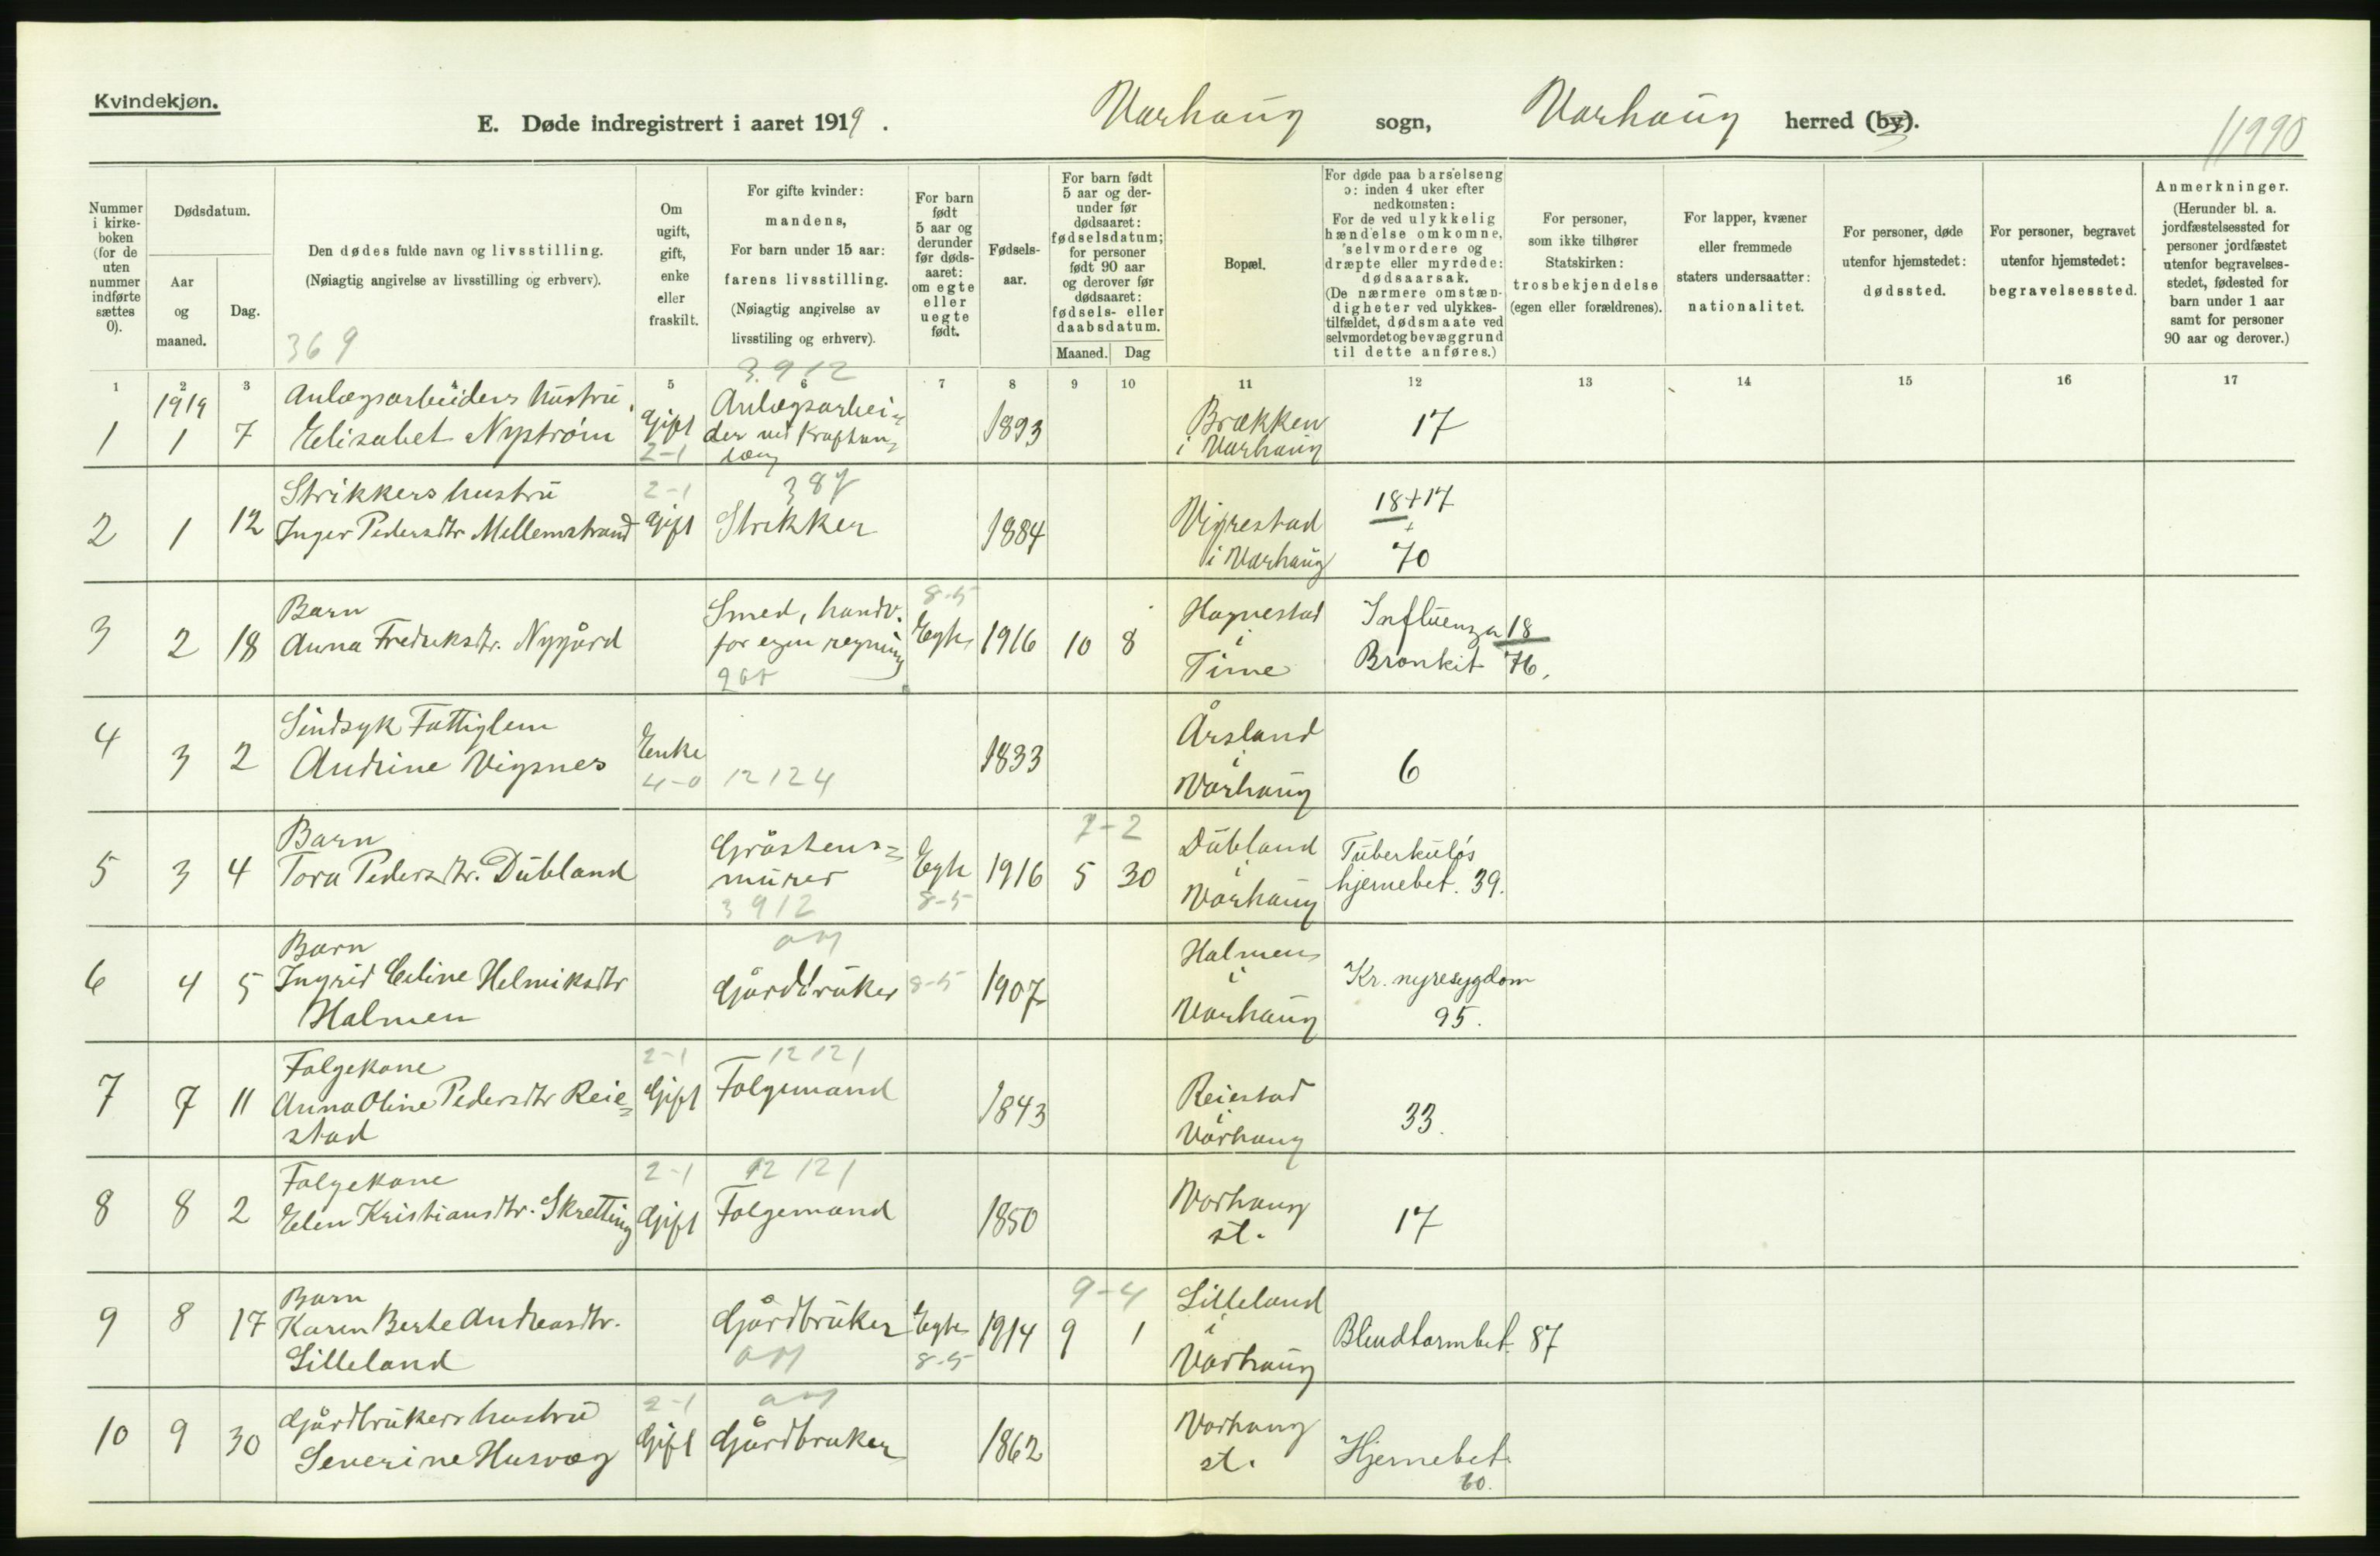 Kvindekjøn.
E. Døde indregistrert i aaret 1919.
Varhaug sogn, Varhaug herred (by).
11990
Nummer i kirke-boken (for de uten nummer indførte sættes 0).
Dødsdatum.
Aar og maaned.
Dag.
Den dødes fulde navn og livsstilling.
(Nøiagtig angivelse av livsstilling og erhverv).
369
Om ugift, gift, enke eller fraskilt.
For gifte kvinder: mandens,
For barn under 15 aar: farens livsstilling.
(Nøiagtig angivelse av livsstiling og erhverv).
For barn født 5 aar og derunder før døds-aaret: om egte eller uegte født.
Fødsels-aar.
For barn født 5 aar og der-under før dødsaaret: fødselsdatum; for personer født 90 aar og derover før dødsaaret: fødsels- eller daabsdatum.
Maaned. Dag
Bopæl.
For døde paa barselseng ɔ: inden 4 uker efter nedkomsten:
For de ved ulykkelig hændelse omkomne, selvmordere og dræpte eller myrdede: dødsaarsak.
(De nærmere omstæn-digheter ved ulykkes-tilfældet, dødsmaate ved selvmordet og bevæggrund til dette anføres.)
For personer, som ikke tilhører Statskirken: trosbekjendelse (egen eller forældrenes).
For lapper, kvæner eller fremmede staters undersaatter: nationalitet.
For personer, døde utenfor hjemstedet: dødssted.
For personer, begravet utenfor hjemstedet: begravelsessted.
Anmerkninger.
(Herunder bl. a. jordfæstelsessted for personer jordfæstet utenfor begravelses-stedet, fødested for barn under 1 aar samt for personer 90 aar og derover.)
1 2 3 5 6 7 8 9 10 11 12 13 14 15 16 17
1919 Anlægsarbeiders hustru. 3912
1 1 7 Elisabet Nystrøm Gift 2-1 Anlægsarbei-der ved Kraftan-læg 1893 Brækken i Varhaug 17
Strikkers hustru 2-1
2 1 12 Inger Pedersdtr Mellemstrand Gift Strikker 1884 Vigrestad i Varhaug 18+17 + 70
Barn
3 2 18 Anna Fredriksdtr. Nygård Smed, handv. for egen regning 8-5 Egte 1916 10 8 Hognestad i Time Influenza 18 Bronkit 76.
Sindsyk Fattiglem
4 3 2 Andrine Vigsnes Enke 4-0 12124 1833 Årsland i Varhaug 6
Barn
5 3 4 Tora Pedersdtr. Dubland Gråstens=murer 3912 Egte 8-5 1916 7-2 5 30 Dubland i Varhaug Tuberkuløs hjernebet. 39.
Barn
6 4 5 Ingrid Eline Helmiksdtr Halmen Gårdbruker 8-5 1907 Halmen i Varhaug Kr. nyresygdom 95.
Folgekone 2-1 12121
7 7 11 Anna Oline Pedersdtr Reie=stad Gift Folgemand 1843 Reiestad i Varhaug 33.
Folgekone 2-1 12121
8 8 2 Elen Kristiansdtr. Skretting Gift Folgemand 1850 Varhaug st. 17
Barn
9 8 17 Karen Berte Andreasdtr. Lilleland Gårdbruker Egte 8-5 1914 9-4 9 1 Lilleland i Varhaug Blindtarmbet. 87
Gårdbrukers hustru 2-1
10 9 30 Severine Husvæg Gift Gårdbruker 1862 Varhaug st. Hjernebet. 60.